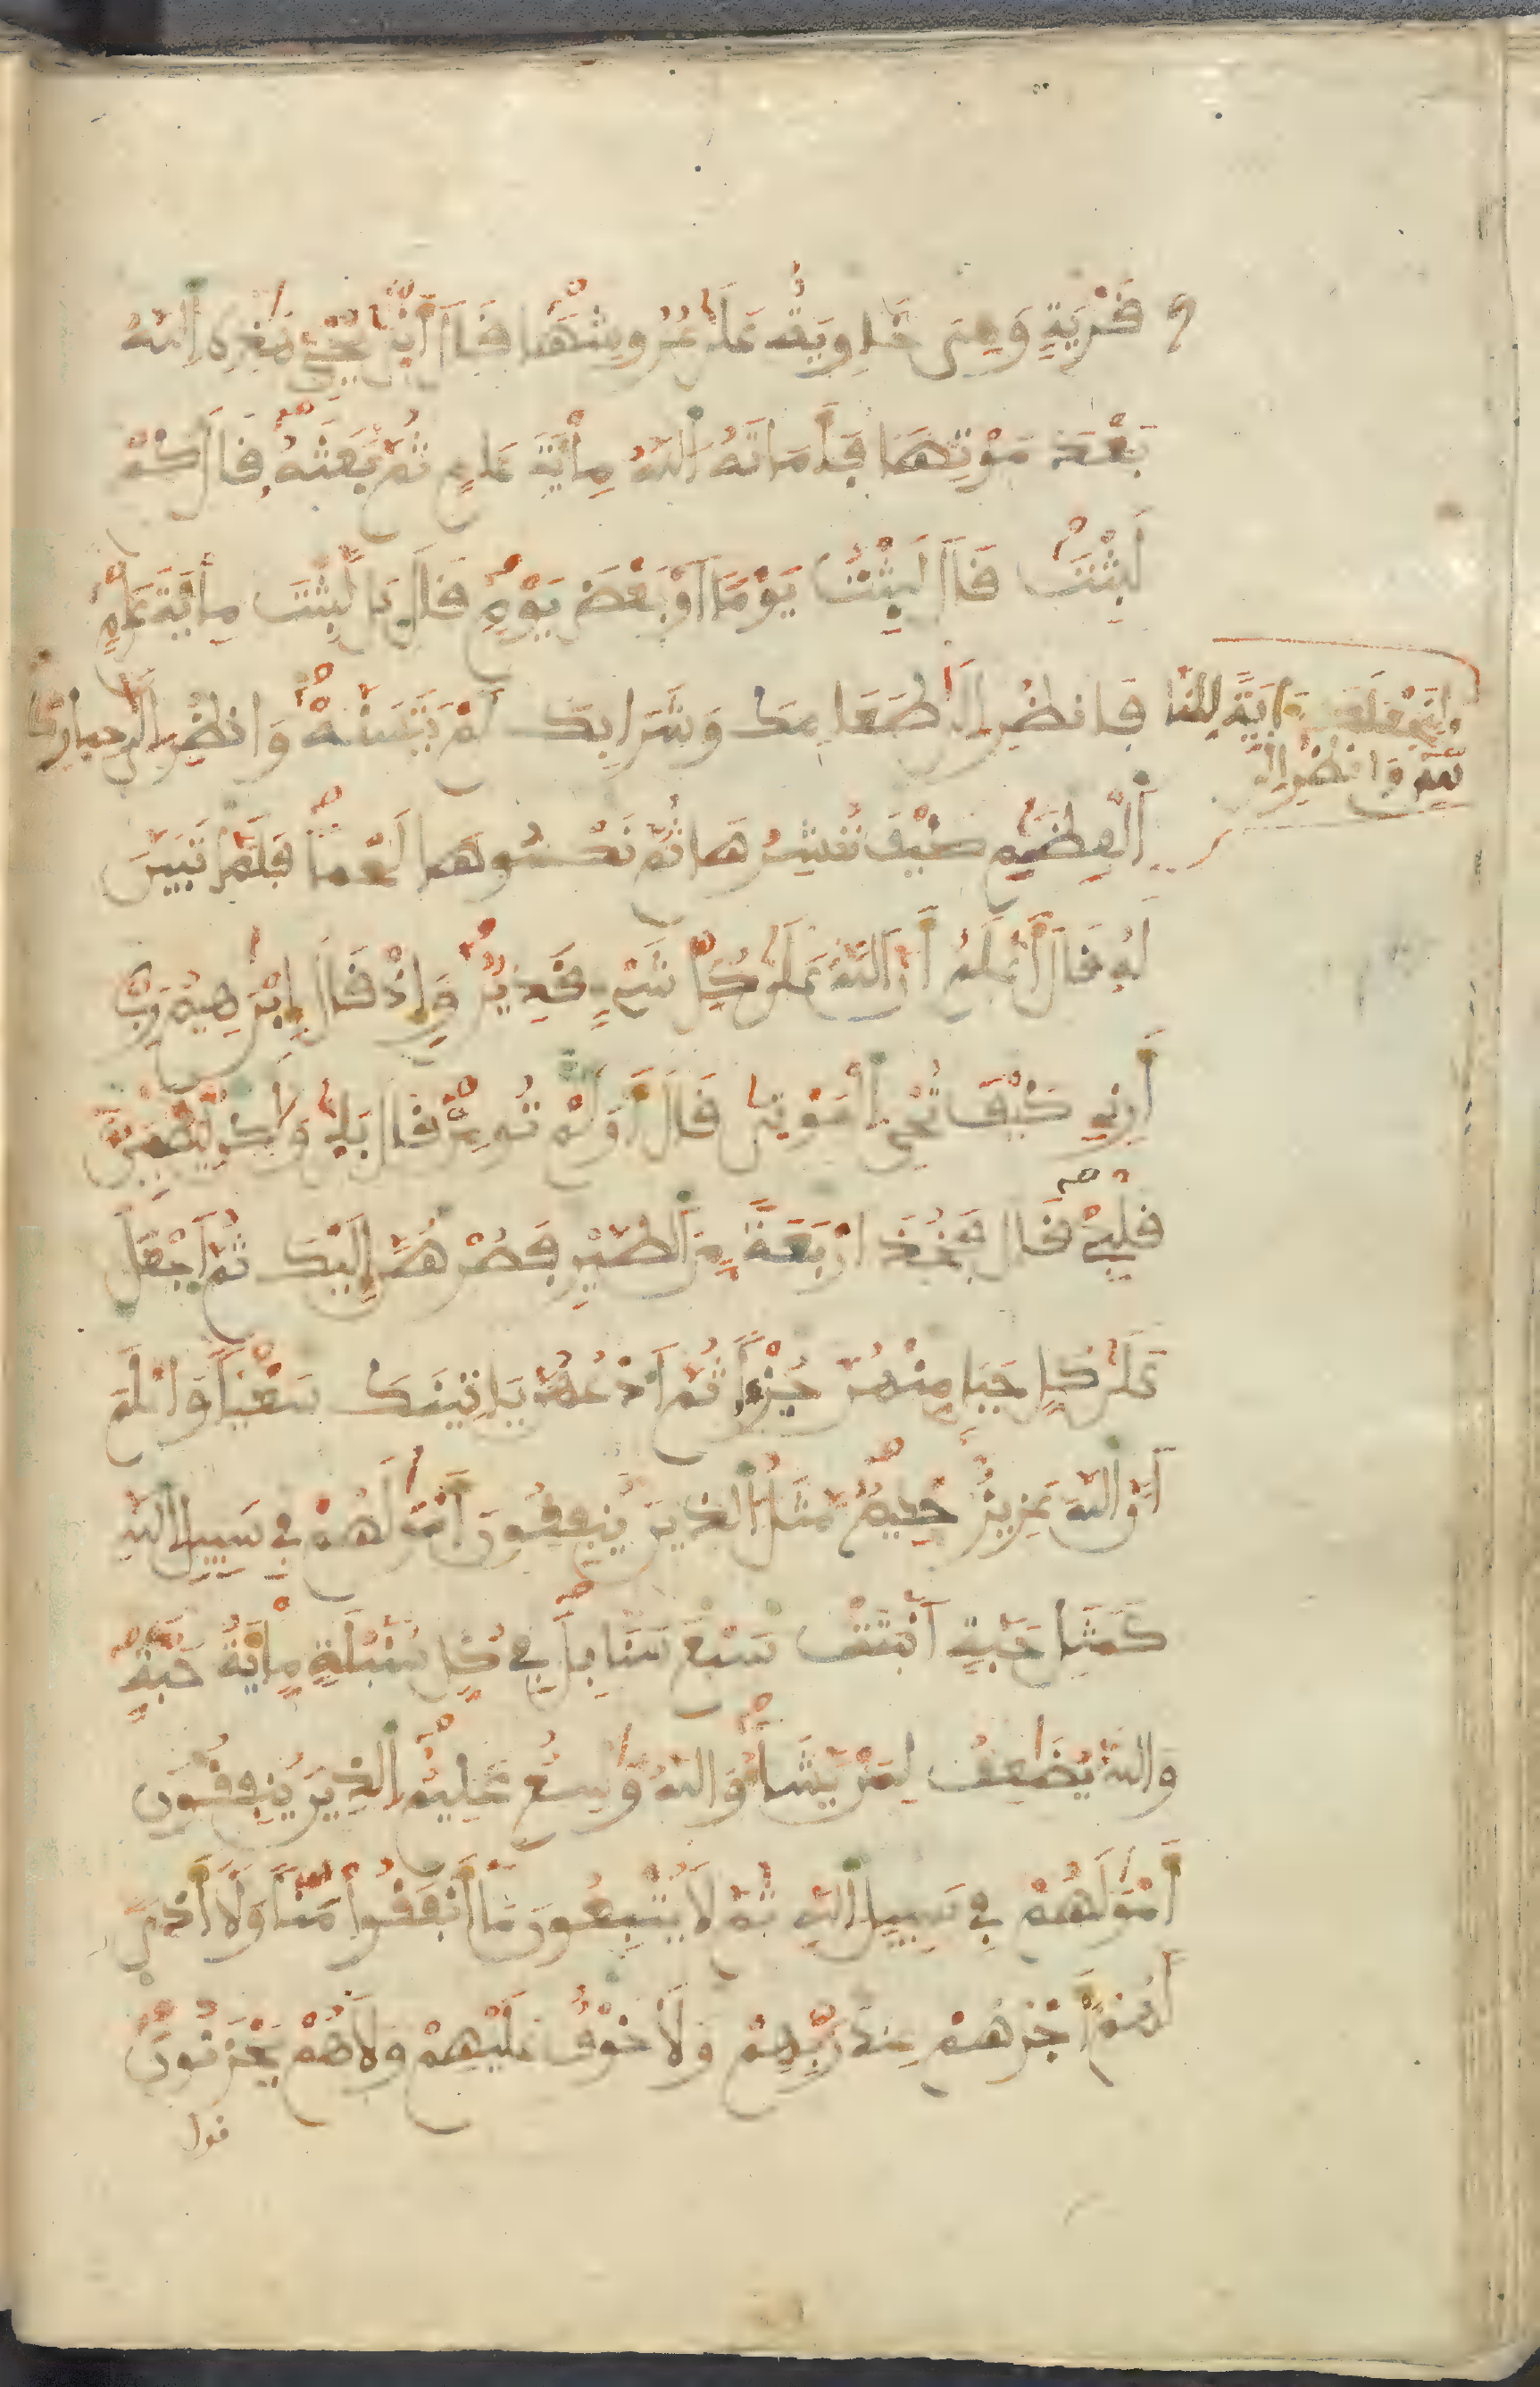 قَرْيَةٍ وَهِىَ خَاوِيَةٌ عَلَىٰ عُرُوشِهَا قَالَ أَنّىٰ يُحْيِ هَٰذِهِ اِ۬للَّهُ
بَعْدَ مَوْتِهَا فَأَمَاتَهُ اُ۬للَّهُ مِاْئَةَ عَامٍ ثُمَّ بَعَثَهُۥ قَالَ كَمْ
لَبِثْتَ قَالَ لَبِثْتُ يَوْمًا اَوْ بَعْضَ يَوْمٍ قَالَ بَل لَّبِثْتَ مِاْئَةَ عَامٍ
فَانظُرِ اِلَىٰ طَعَامِكَ وَشَرَابِكَ لَمْ يَتَسَنَّهْ وَانظُرِ اِلَىٰ حِمَارِكَ
وَلِنَجْعَلَكَ ءَايَةً لِّلنَّا
سِ وَانظُرِ اِلَى
اَ۬لْعِظَامِ كَيْفَ نُنشِرُهَا ثُمَّ نَكْسُوهَا لَحْمًا فَلَمَّا تَبَيَّنَ
لَهُۥ قَالَ أَعْلَمُ أَنَّ اَ۬للَّهَ عَلَىٰ كُلِّ شَيْءٍ قَدِيرٌ وَإِذْ قَالَ إِبْرَٰهِيمُ رَبِّ
أَرِنِي كَيْفَ تُحْيِ اِ۬لْمَوْتىٰ قَالَ أَوَلَمْ تُومِن قَالَ بَلىٰ وَلَٰكِن لِّيَطْمَئِنَّ
قَلْبِي قَالَ فَخُذَ اَرْبَعَةً مِّنَ اَ۬لطَّيْرِ فَصُرْهُنَّ إِلَيْكَ ثُمَّ اَجْعَلْ
عَلَىٰ كُلِّ جَبَلٍ مِّنْهُنَّ جُزْءًا ثُمَّ اَدْعُهُنَّ يَاتِينَكَ سَعْيًا وَاعْلَمَ
اَنَّ اَ۬للَّهَ عَزِيزٌ حَكِيمٌ مَّثَلُ اُ۬لذِينَ يُنفِقُونَ أَمْوَٰلَهُمْ فِي سَبِيلِ اِ۬للَّهِ
كَمَثَلِ حَبَّةٍ اَنۢبَتَتْ سَبْعَ سَنَابِلَ فِي كُلِّ سُنۢبُلَةٍ مِّاْئَةُ حَبَّةٍ
وَاللَّهُ يُضَٰعِفُ لِمَنْ يَّشَآءُ وَاللَّهُ وَٰسِعٌ عَلِيمٌ اِ۬لذِينَ يُنفِقُونَ
أَمْوَٰلَهُمْ فِي سَبِيلِ اِ۬للَّهِ ثُمَّ لَا يُتْبِعُونَ مَا أَنفَقُواْ مَنًّا وَلَا أَذىً
لَّهُمُۥ أَجْرُهُمْ عِندَ رَبِّهِمْ وَلَا خَوْفٌ عَلَيْهِمْ وَلَا هُمْ يَحْزَنُونَ
قول